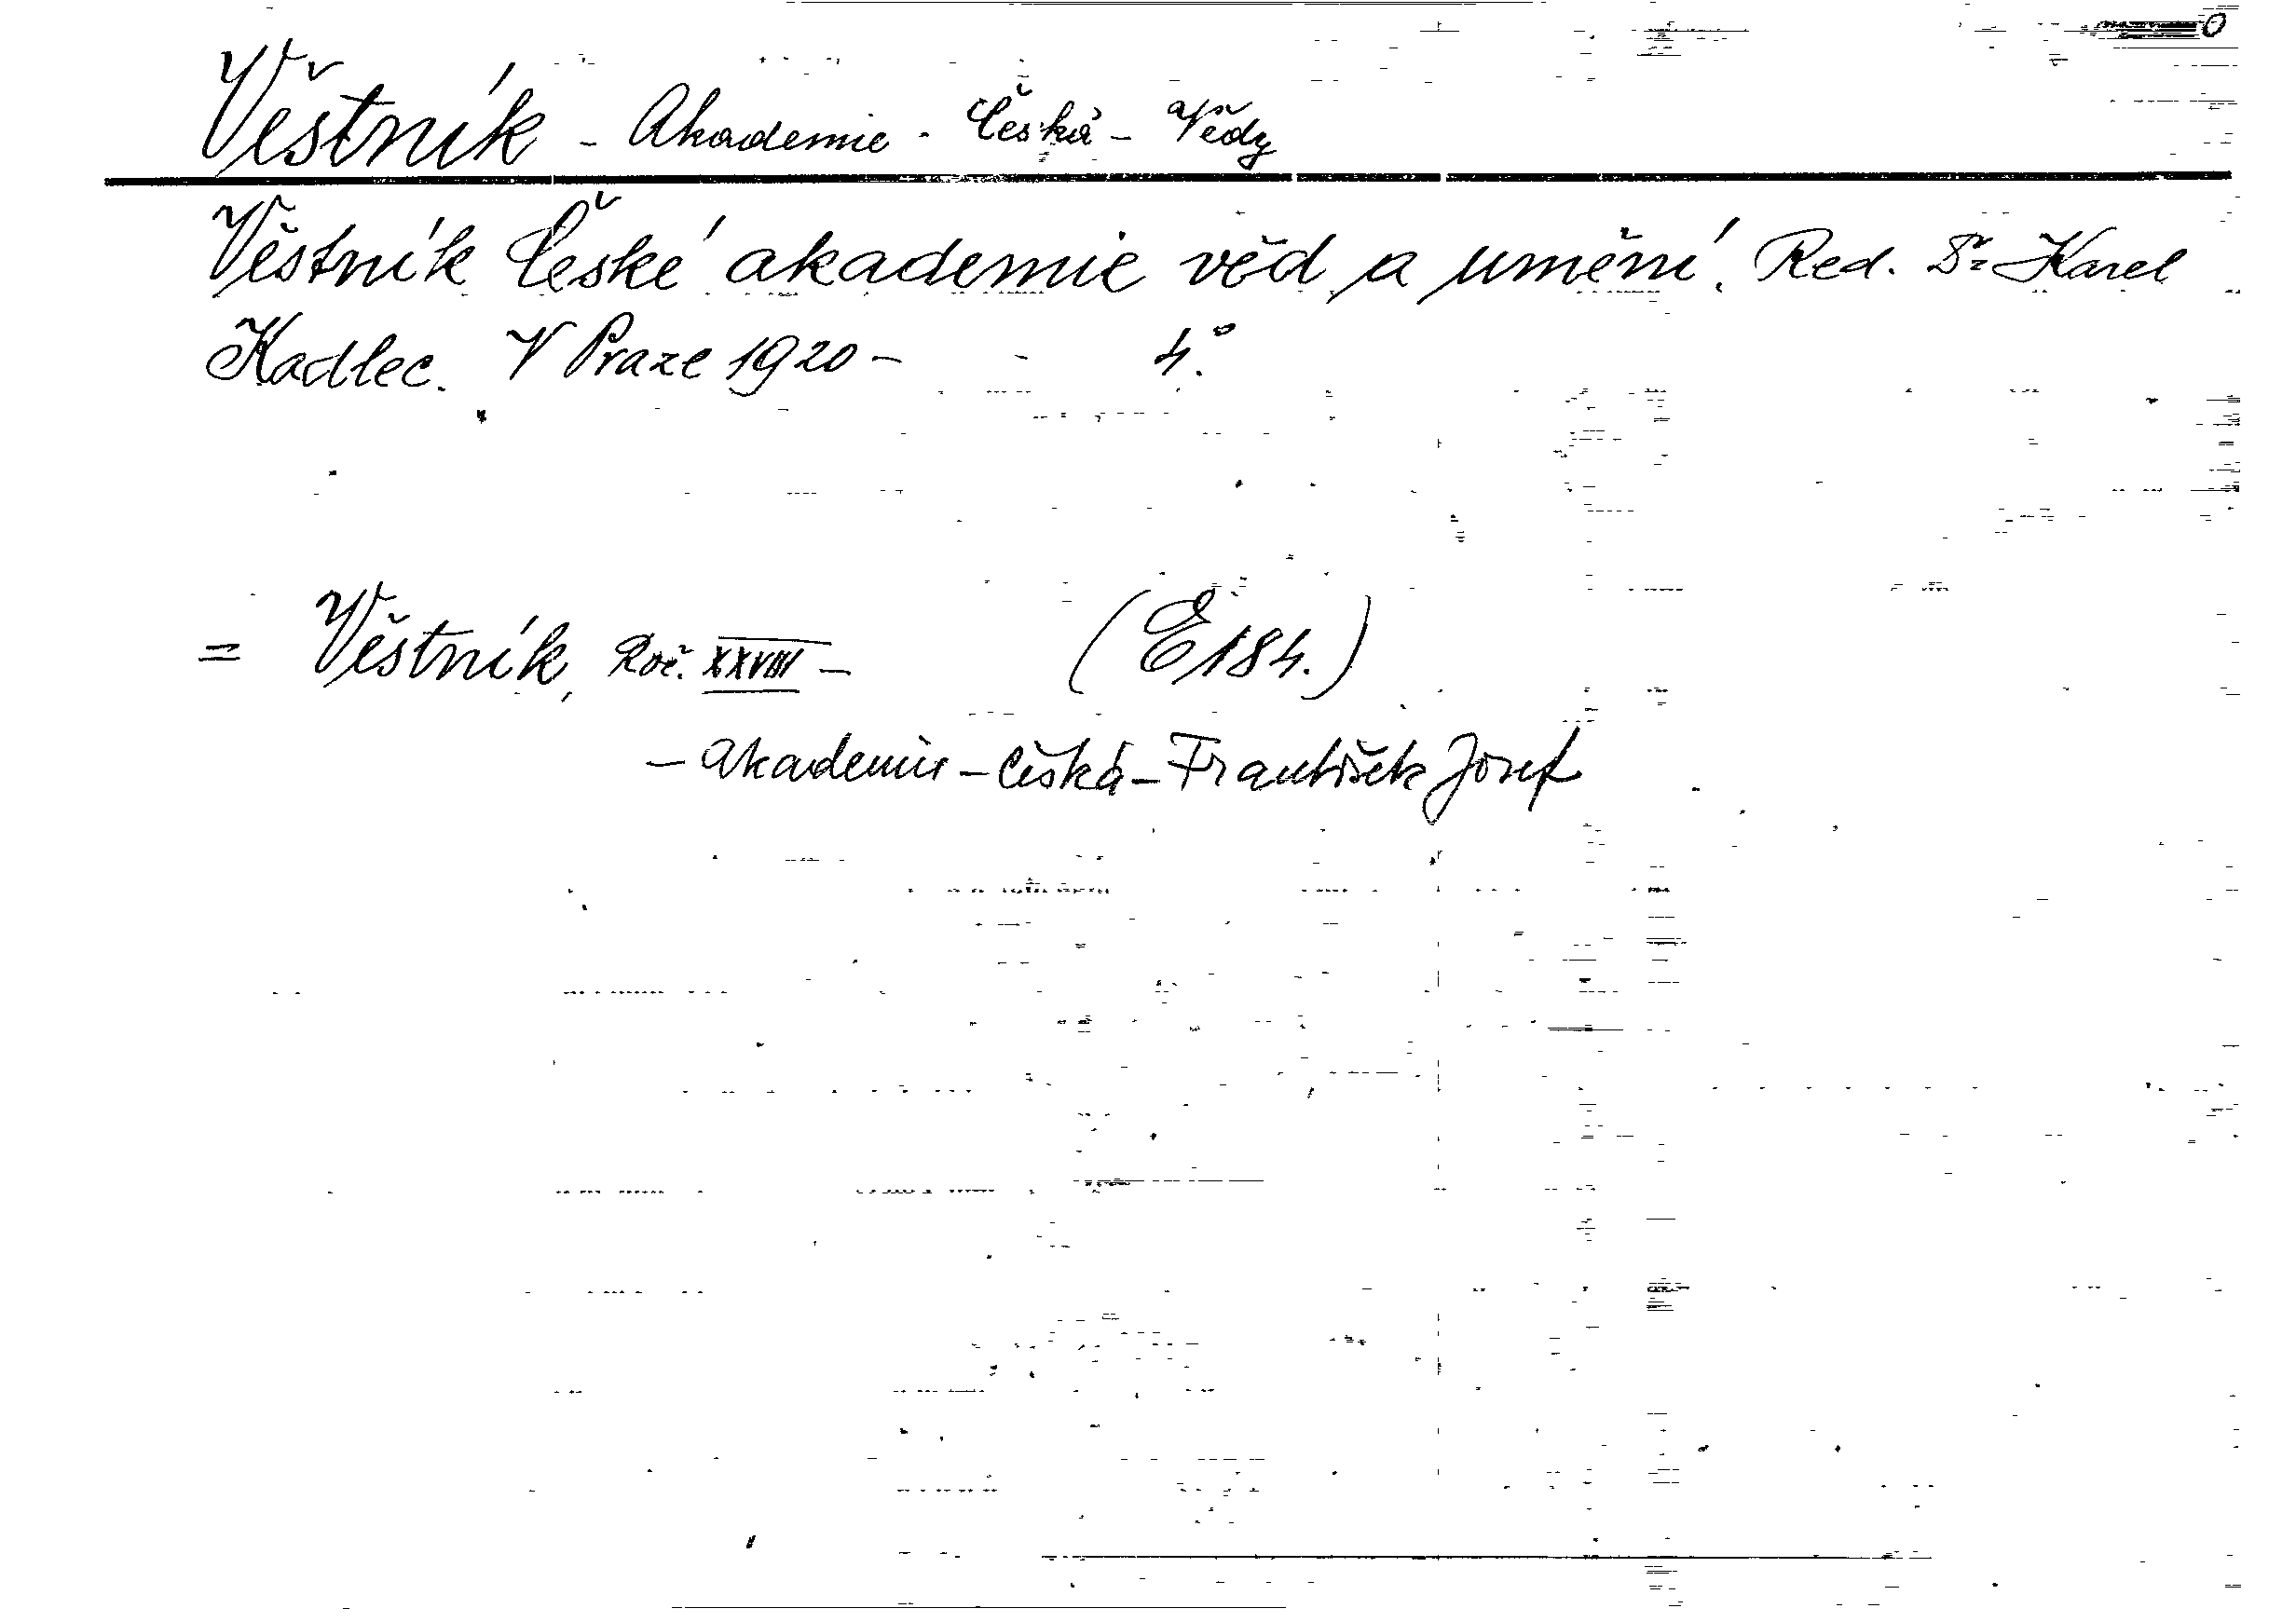 Věstník - Akademie - Česká - Vědy
Věstník České akademie věd a umění. Red. Dr. Karel
Kadlec. V Praze 1920 - - 4.°
= Věstník, Roč. XXVIII - (E 184.)
- Akademie - Česká - František Josef